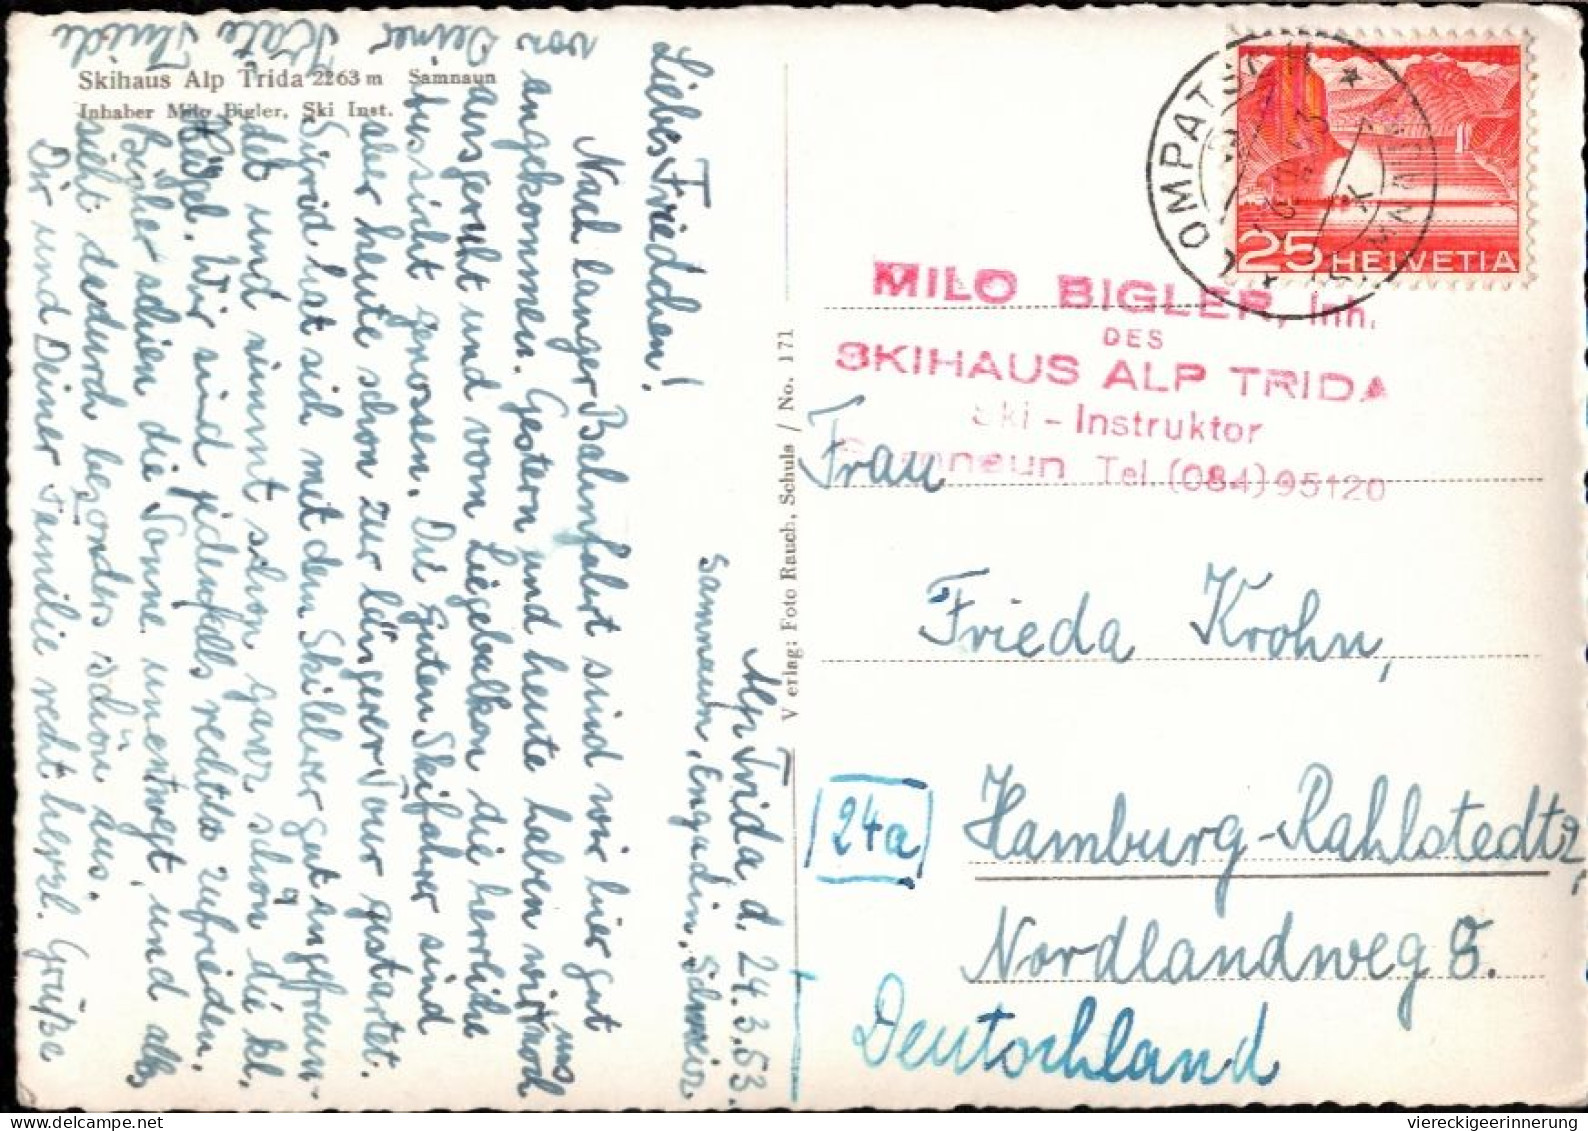 Skihaus Alp Trida 2263 m Samnaun
Inhaber Milo Bigler, Ski Inst.
Alp Trida, d. 24.3.53.
Samnaun, Engadin, Schweiz
Liebes Friedchen!
Nach langer Bahnfahrt sind wir hier gut
angekommen. Gestern und heute haben wir uns noch
ausgeruht und vom Liegebalkon die herrliche
Aussicht genossen. Die guten Skifahrer sind
aber heute schon zur längeren Tour gestartet.
Sigrid hat sich mit dem Skilehrer gut angefreun-
det und nimmt schon ganz schön die kl.
Hügel. Wir sind jedenfalls rechtso zufrieden.
Bisher schien die Sonne unentwegt, und alles
sieht dadurch besonders schön aus.
Dir und Deiner Familie recht herzl. Grüße
von Deiner Käte Thiede
Verlag: Foto Rauch, Schuls / No. 171
COMPATSCH
(SAMNAUN)
25 HELVETIA
MILO BIGLER, Inh.
DES
SKIHAUS ALP TRIDA
Ski - Instruktor
Samnaun Tel. (084) 95120
Frau
Frieda Krohn,
24a
Hamburg-Rahlstedt 2,
Nordlandweg 8.
Deutschland
viereckigeerinnerung